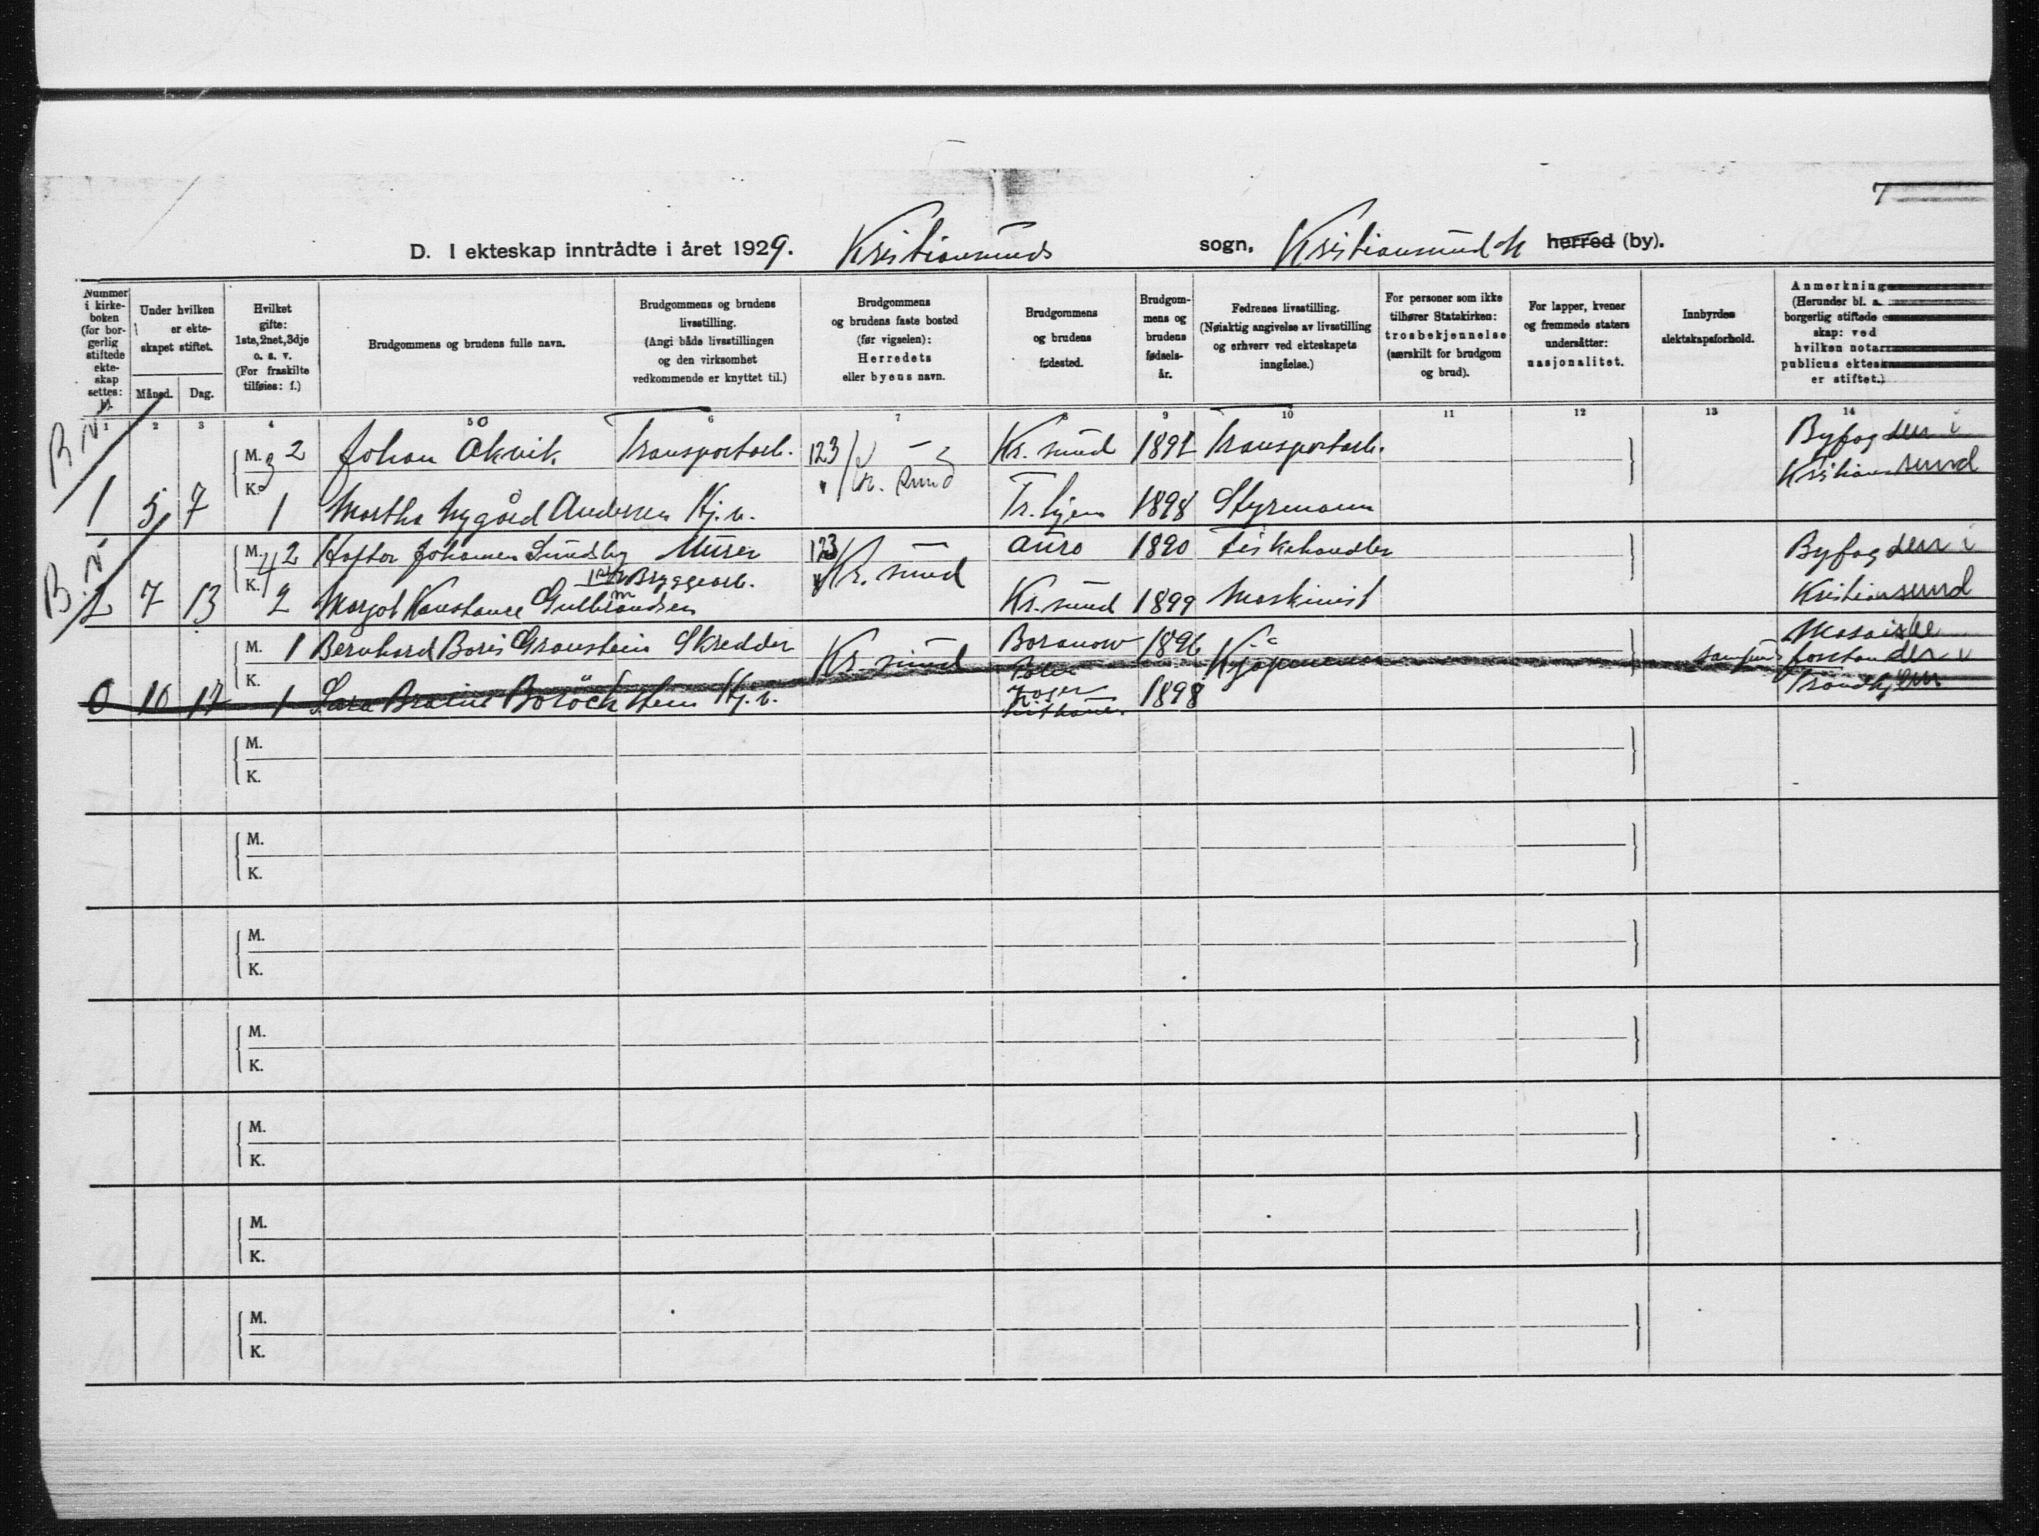 7
D. I ekteskap inntrådte i året 1929. Kristiansunds sogn, Kristiansund N herred (by).
Nummer i kirke-boken (for bor-gerlig stiftede ekte-skap settes: b).
Under hvilken er ekte-skapet stiftet.
Måned. Dag.
Hvilket gifte: 1ste, 2net, 3dje o. s. v. (For fraskilte tilføies: f.)
Brudgommens og brudens fulle navn.
Brudgommens og brudens livsstilling. (Angi både livsstillingen og den virksomhet vedkommende er knyttet til.)
Brudgommens og brudens faste bosted (før vigselen): Herredets eller byens navn.
Brudgommens og brudens fødested.
Brudgom-mens og brudens fødsels-år.
Fedrenes livsstilling. (Nøiaktig angivelse av livsstilling og erhverv ved ekteskapets inngåelse.)
For personer som ikke tilhører Statskirken: trosbekjennelse (særskilt for brudgom og brud).
For lapper, kvener og fremmede staters undersåtter: nasjonalitet.
Innbyrdes slektskapsforhold.
Anmerkning (Herunder bl. a. borgerlig stiftede skap: ved hvilken notar publicus ektesk er stiftet.)
1 2 3 4 5 6 7 8 9 10 11 12 13 14
B.V. M. 3 2 Johan Okvik Transportarb. 123 Kr. sund Kr. sund 1891 Transportarb. Byfogden i
1 5 7 K. 1 Martha Nygård Andersen Hj.v. " 1898 Styrmann Kristiansund
B.V. M. 4 2 Johannes Sundsby Murer 123 Kr. sund Aure 1890 Fiskehandler Byfogden i
2 7 13 K. 2 Margot Konstanse Gulbrandsen Bryggearb. " Kr. sund 1899 Maskinist Kristiansund
M. 1 Bernhard Boris Granstein Skredder Kr. sund Boranow 1896 Kjøpmenn Mosaiske
Polen forstander i
0 10 17 K. 1 Sara Hj.v. 1898 Trondhjem
M.
K.
M.
K.
M.
K.
M.
K.
M.
K.
M.
K.
M.
K.